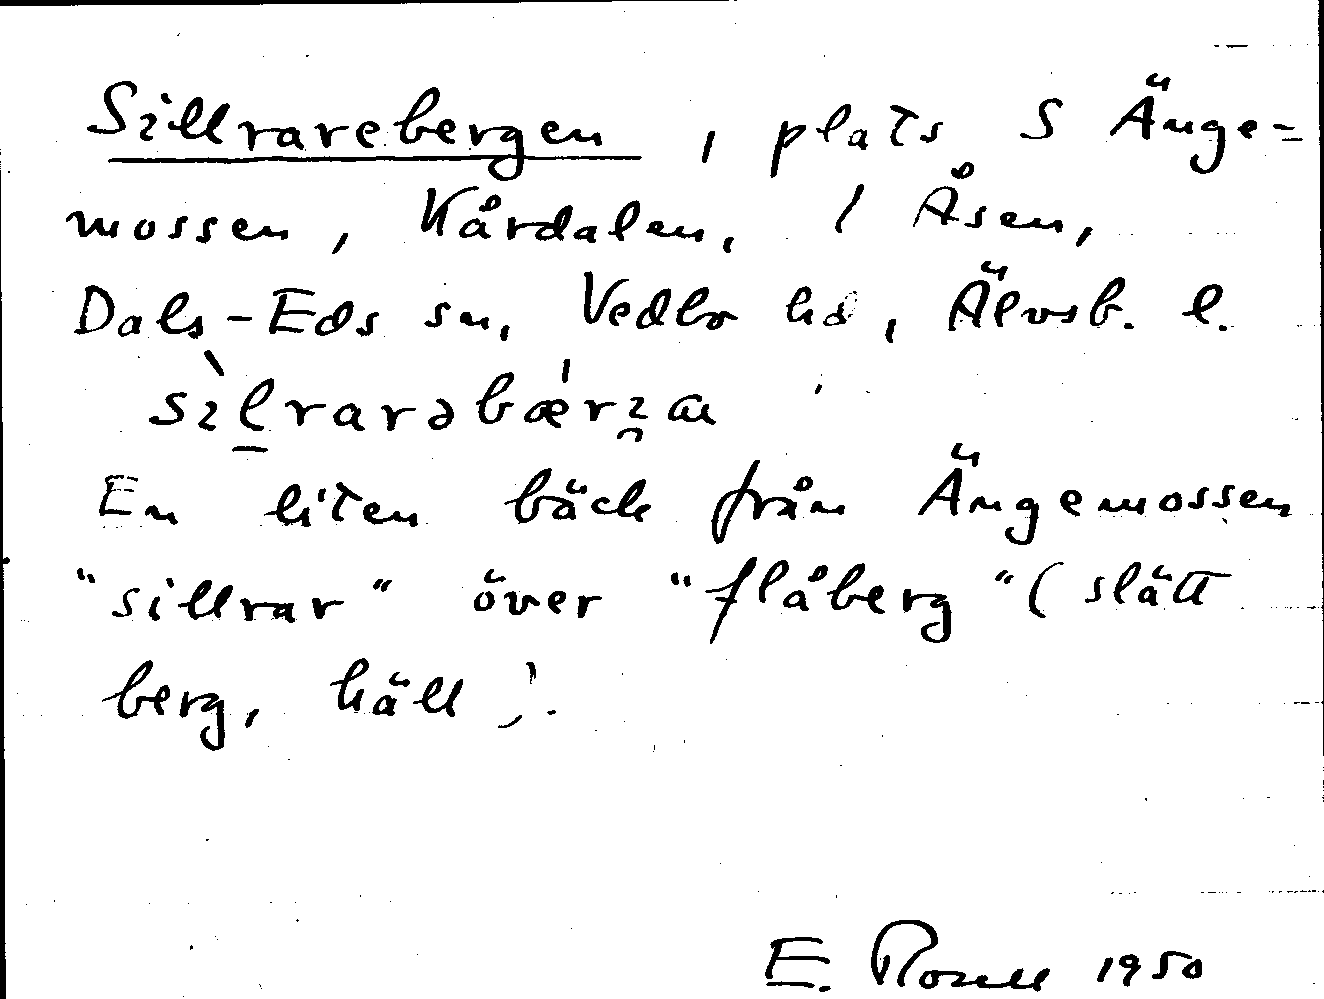 Sillrarebergen, plats S Änge-
mossen, Kårdalen, / Åsen,
Dals-Eds sn, Vedbo hd, Älvsb. l.
sìl̠rarəbǽrʒ̑a
En liten bäck från Ängemossen
"sillrar" över "flåberg" (slätt
berg, häll).
E. Rosell 1950